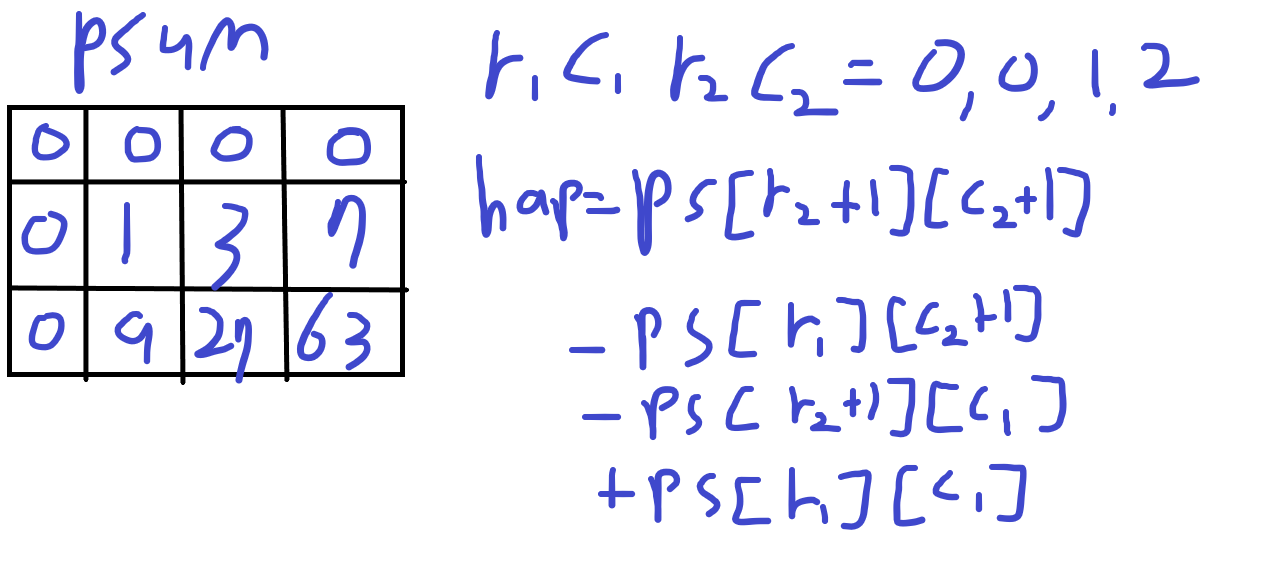 psum
0 0 0 0
0 1 3 7
0 9 27 63
r₁ c₁ r₂ c₂ = 0, 0, 1, 2
hap = ps[r₂+1][c₂+1]
- ps[r₁][c₂+1]
- ps[r₂+1][c₁]
+ ps[r₁][c₁]